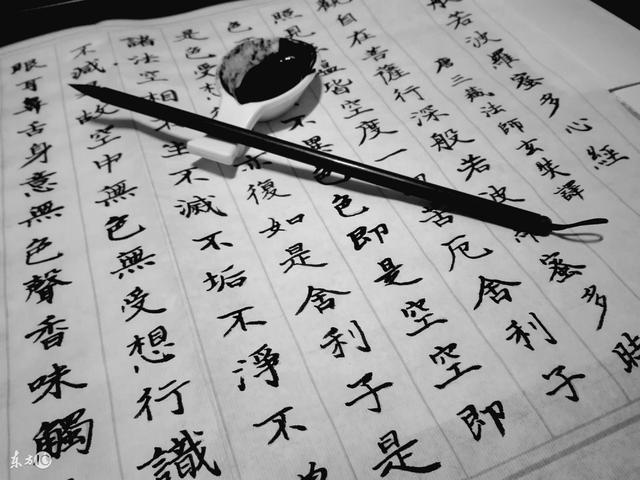 般若波羅蜜多心經
唐三藏法師玄奘譯
觀自在菩薩行深般若波蜜多時
照見皆空度一苦厄舍利子
色不異色即是空空即
是色受想亦復如是舍利子是
諸法空相不生不滅不垢不淨不
不減故空中無色無受想行識
眼耳鼻舌身意無色聲香味觸
东方IC